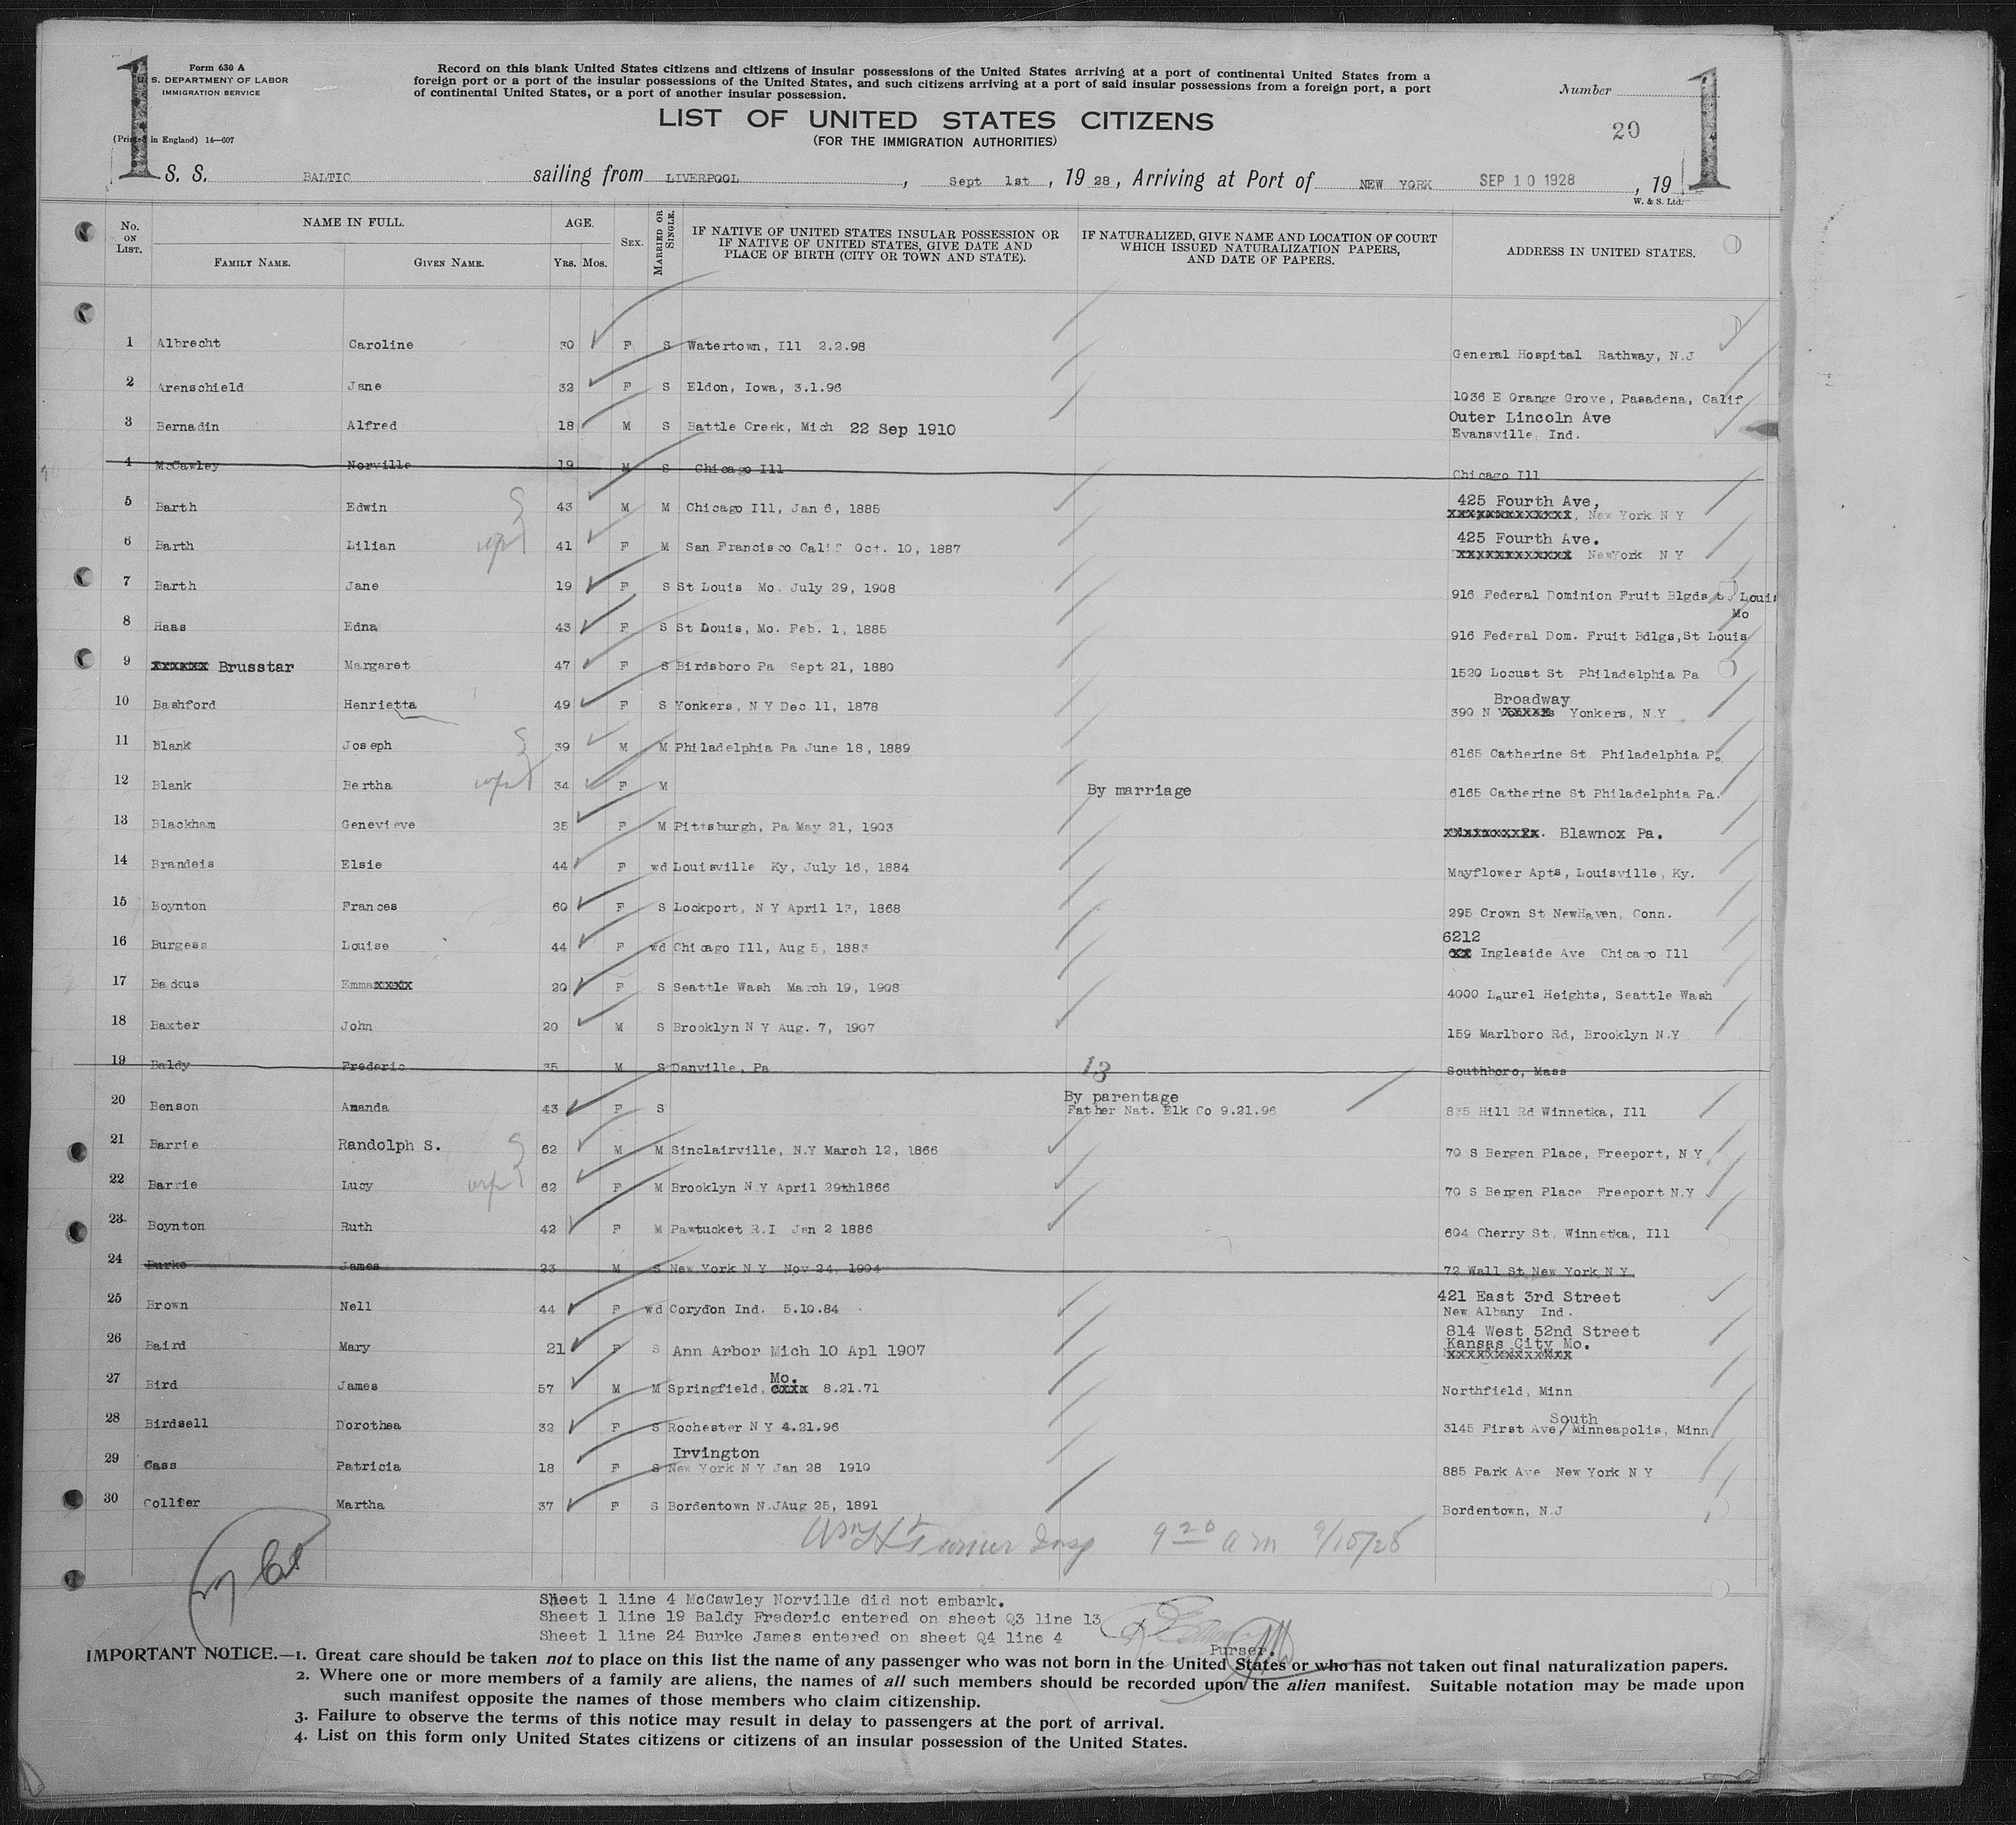 1
Form 630 A
U. S. DEPARTMENT OF LABOR
IMMIGRATION SERVICE
(Printed in England) 14—607
Record on this blank United States citizens and citizens of insular possessions of the United States arriving at a port of continental United States from a
foreign port or a port of the insular possessions of the United States, and such citizens arriving at a port of said insular possessions from a foreign port, a port
of continental United States, or a port of another insular possession.
LIST OF UNITED STATES CITIZENS
(FOR THE IMMIGRATION AUTHORITIES)
Number
20
1
S. S. BALTIC sailing from LIVERPOOL, Sept 1st, 1928, Arriving at Port of NEW YORK SEP 10 1928, 19
W. & S. Ltd.
No. ON LIST. NAME IN FULL. FAMILY NAME. GIVEN NAME. AGE. Yrs. Mos. SEX. MARRIED OR SINGLE. IF NATIVE OF UNITED STATES INSULAR POSSESSION OR IF NATIVE OF UNITED STATES, GIVE DATE AND PLACE OF BIRTH (CITY OR TOWN AND STATE). IF NATURALIZED, GIVE NAME AND LOCATION OF COURT WHICH ISSUED NATURALIZATION PAPERS, AND DATE OF PAPERS. ADDRESS IN UNITED STATES.
1 Albrecht Caroline 30 F S Watertown, Ill 2.2.98 General Hospital Rathway, N.J
2 Arenschield Jane 32 F S Eldon, Iowa, 3.1.96 1036 E Orange Grove, Pasadena, Calif
3 Bernadin Alfred 18 M S Battle Creek, Mich 22 Sep 1910 Outer Lincoln Ave
Evansville, Ind.
4 McCawley Norville 19 M S Chicago Ill Chicago Ill
5 Barth Edwin 43 M M Chicago Ill, Jan 6, 1885 425 Fourth Ave,
xxxxxxxxxxxxx, New York N Y
6 Barth Lilian wife 41 F M San Francisco Calif Oct. 10, 1887 425 Fourth Ave.
xxxxxxxxxxxx NewYork N Y
7 Barth Jane 19 F S St Louis Mo. July 29, 1908 916 Federal Dominion Fruit Blgds, St Louis
Mo
8 Haas Edna 43 F S St Louis, Mo. Feb. 1, 1885 916 Federal Dom. Fruit Bdlgs,St Louis
9 xxxxxx Brusstar Margaret 47 F S Birdsboro Pa Sept 21, 1880 1520 Locust St Philadelphia Pa
10 Bashford Henrietta 49 F S Yonkers, N Y Dec 11, 1878 Broadway
390 N xxxxxx Yonkers, N.Y
11 Blank Joseph 39 M M Philadelphia Pa June 18, 1889 6165 Catherine St Philadelphia Pa
12 Blank Bertha wife 34 F M By marriage 6165 Catherine St Philadelphia Pa.
13 Blackham Genevieve 25 F M Pittsburgh, Pa May 21, 1903 xxxxxxxxxx. Blawnox Pa.
14 Brandeis Elsie 44 F wd Louisville Ky, July 16, 1884 Mayflower Apts, Louisville, Ky.
15 Boynton Frances 60 F S Lockport, N Y April 13, 1868 295 Crown St NewHaven, Conn.
16 Burgess Louise 44 F wd Chicago Ill, Aug 5, 1883 6212
xx Ingleside Ave Chicago Ill
17 Backus Emmaxxxx 20 F S Seattle Wash March 19, 1908 4000 Laurel Heights, Seattle Wash
18 Baxter John 20 M S Brooklyn N Y Aug. 7, 1907 159 Marlboro Rd, Brooklyn N.Y
19 Baldy Frederic 35 M S Danville, Pa 13 Southboro, Mass
20 Benson Amanda 43 F S By parentage
Father Nat. Elk Co 9.21.96 835 Hill Rd Winnetka, Ill
21 Barrie Randolph S. 62 M M Sinclairville, N.Y March 12, 1866 70 S Bergen Place, Freeport, N.Y
22 Barrie Lucy wife 62 F M Brooklyn N Y April 29th1866 70 S Bergen Place Freeport N.Y
23 Boynton Ruth 42 F M Pawtucket R.I Jan 2 1886 604 Cherry St, Winnetka, Ill
24 Burke James 23 M S New York N Y Nov 24, 1904 72 Wall St New York N Y
25 Brown Nell 44 F wd Corydon Ind. 5.10.84 421 East 3rd Street
New Albany Ind.
26 Baird Mary 21 F S Ann Arbor Mich 10 Apl 1907 814 West 52nd Street
Kansas City Mo.
xxxxxxxxxxxxx
27 Bird James 57 M M Springfield, Mo. xxxx 8.21.71 Northfield, Minn
28 Birdsell Dorothea 32 F S Rochester N Y 4.21.96 3145 First Ave/ South Minneapolis, Minn
29 Cass Patricia 18 F S Irvington
New York N Y Jan 28 1910 885 Park Ave New York N Y
30 Collier Martha 37 F S Bordentown N.J Aug 25, 1891 Bordentown, N.J
Wm H Turner Insp 9 20 am 9/10/28
Sheet 1 line 4 McCawley Norville did not embark.
Sheet 1 line 19 Baldy Frederic entered on sheet Q3 line 13
Sheet 1 line 24 Burke James entered on sheet Q4 line 4
Purser.
IMPORTANT NOTICE.—1. Great care should be taken not to place on this list the name of any passenger who was not born in the United States or who has not taken out final naturalization papers.
2. Where one or more members of a family are aliens, the names of all such members should be recorded upon the alien manifest. Suitable notation may be made upon
such manifest opposite the names of those members who claim citizenship.
3. Failure to observe the terms of this notice may result in delay to passengers at the port of arrival.
4. List on this form only United States citizens or citizens of an insular possession of the United States.